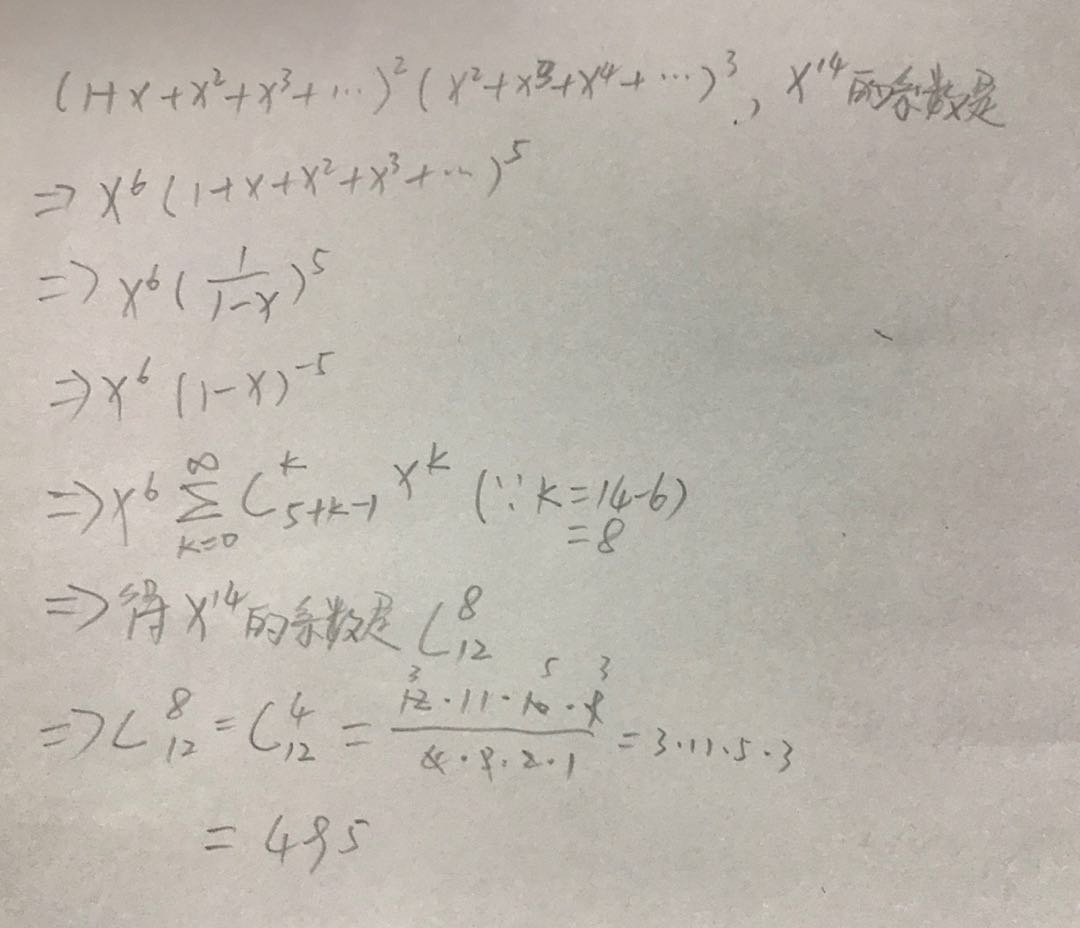 (1+x+x²+x³+...)²(x²+x³+x⁴+...)³, x¹⁴的系数是
⇒ x⁶(1+x+x²+x³+...)⁵
⇒ x⁶(1/(1-x))⁵
⇒ x⁶(1-x)⁻⁵
⇒ x⁶ ∑_{k=0}^{∞} C_{5+k-1}^{k} x^k (∵ k=14-6)
=8
⇒ 得x¹⁴的系数是 C_{12}^{8}
⇒ C_{12}^{8} = C_{12}^{4} = (12·11·10·9)/(4·3·2·1) = 3·11·5·3
= 495